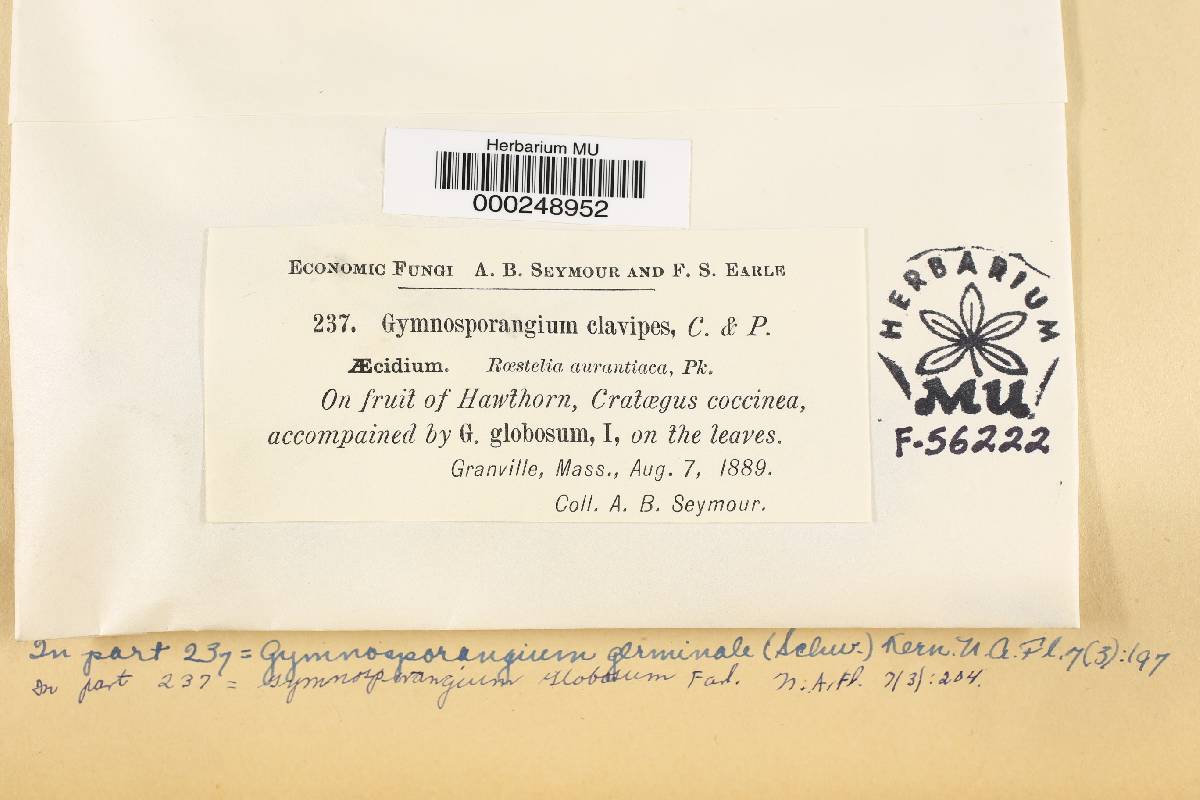 Herbarium MU
000248952
ECONOMIC FUNGI A. B. SEYMOUR AND F. S. EARLE
237. Gymnosporangium clavipes, C. & P.
Æcidium. Rœstelia aurantiaca, Pk.
On fruit of Hawthorn, Cratægus coccinea,
accompained by G. globosum, I, on the leaves.
Granville, Mass., Aug. 7, 1889.
Coll. A. B. Seymour.
HERBARIUM
MU
F-56222
In part 237 = Gymnosporangium germinale (Schw.) Kern. N. A. Fl. 7(3):197
In part 237 = Gymnosporangium globosum Farl. N. A. Fl. 7(3):204.